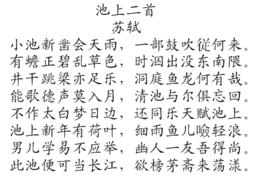 池上二首
苏轼
小池新凿会天雨，一部鼓吹从何来。
有蟾正碧乱草色，时泅出没东南隈。
井干跳梁亦足乐，洞庭鱼龙何有哉。
能歌德声莫入月，清池与尔俱忘回。
不作太白梦日边，还同乐天赋池上。
池上新年有荷叶，细雨鱼儿噞轻浪。
男儿学易不应举，幽人一友吾得尚。
此池便可当长江，欲榜茅斋来荡漾。